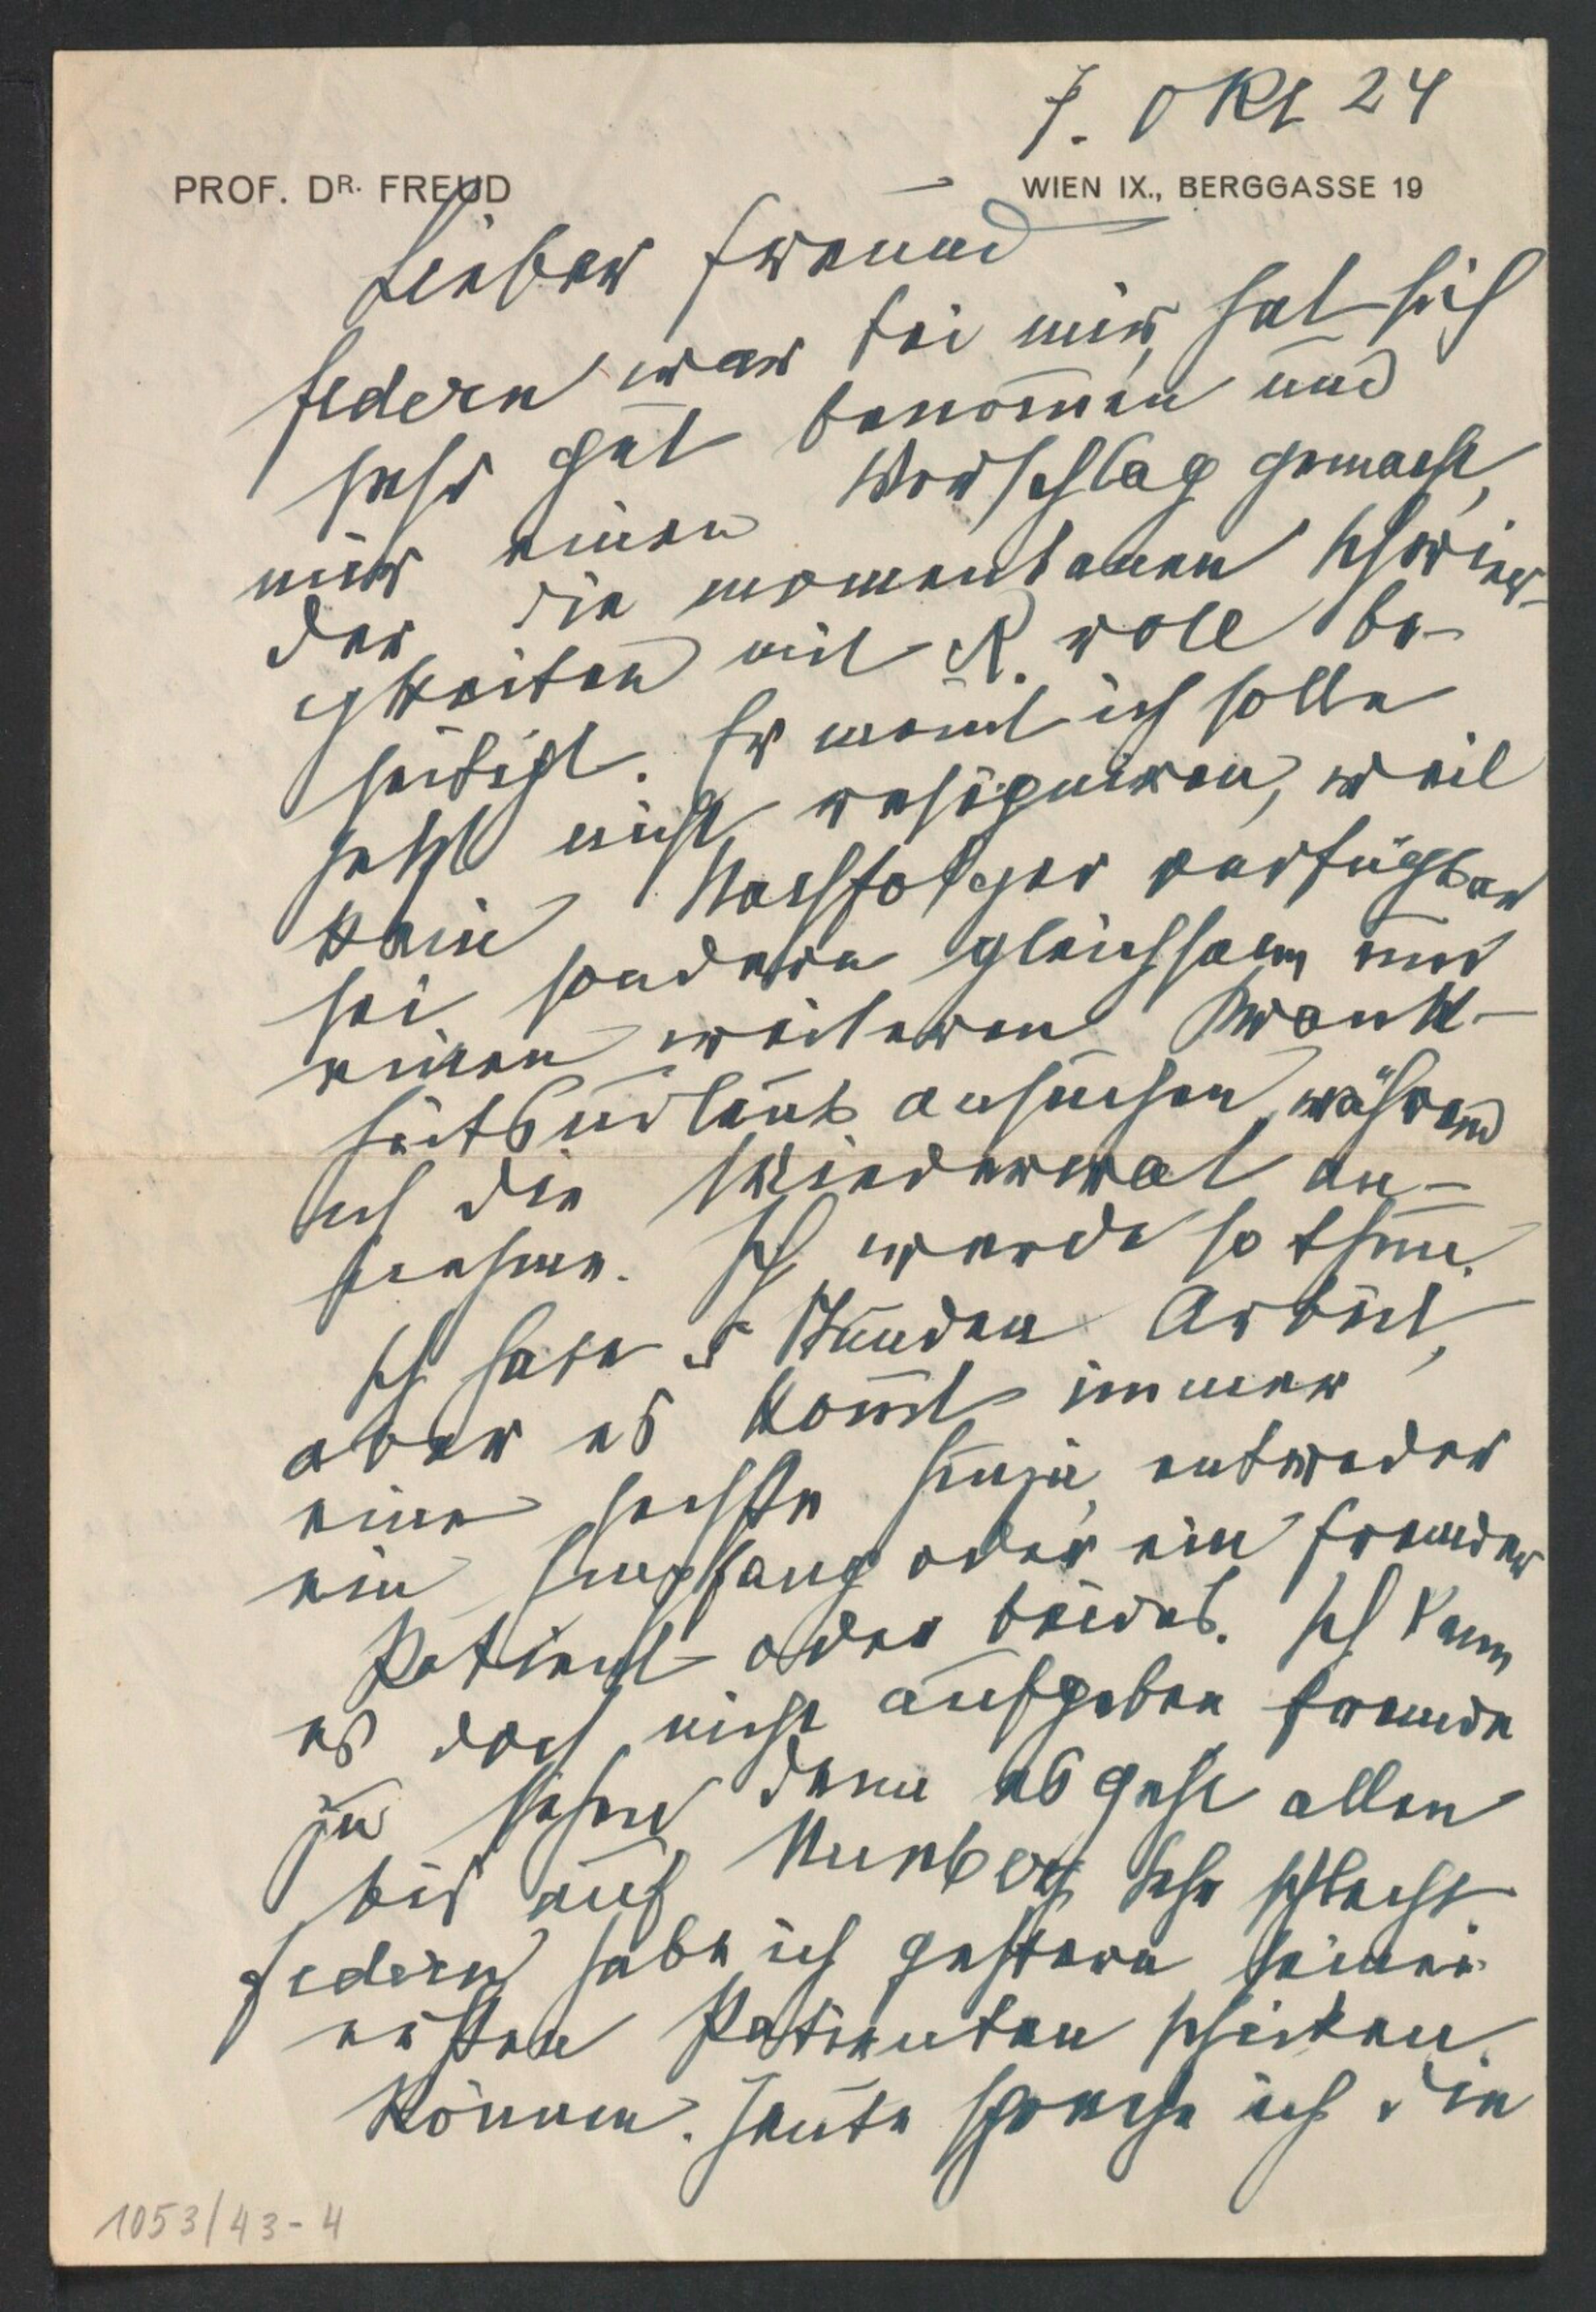 7. Okt 24
PROF. DR. FREUD WIEN IX., BERGGASSE 19
Lieber Freund
Federn war bei mir, hat sich
sehr gut benom̄en und
mir einen Vorschlag gemacht,
der die momentanen Schwier-
igkeiten mit R. voll be-
seitigt. Er meint ich solle
jetzt nicht resigniren, weil
kein Nachfolger verfügbar
sei sondern gleichsam um
einen weiteren Krank-
heitsurlaub ansuchen, während
ich die Wiederwal an-
nehme. Ich werde so thun.
Ich habe 5 Stunden Arbeit,
aber es kom̄t immer
eine sechste hinzu, entweder
ein Empfang oder ein fremder
Patient oder beides. Ich kann
es doch nicht aufgeben Fremde
zu sehen denn es geht allen
bis auf Nunberg sehr schlecht.
Federn habe ich gestern seinen
ersten Patienten schicken
können. Heute spreche ich die
1053/43-4